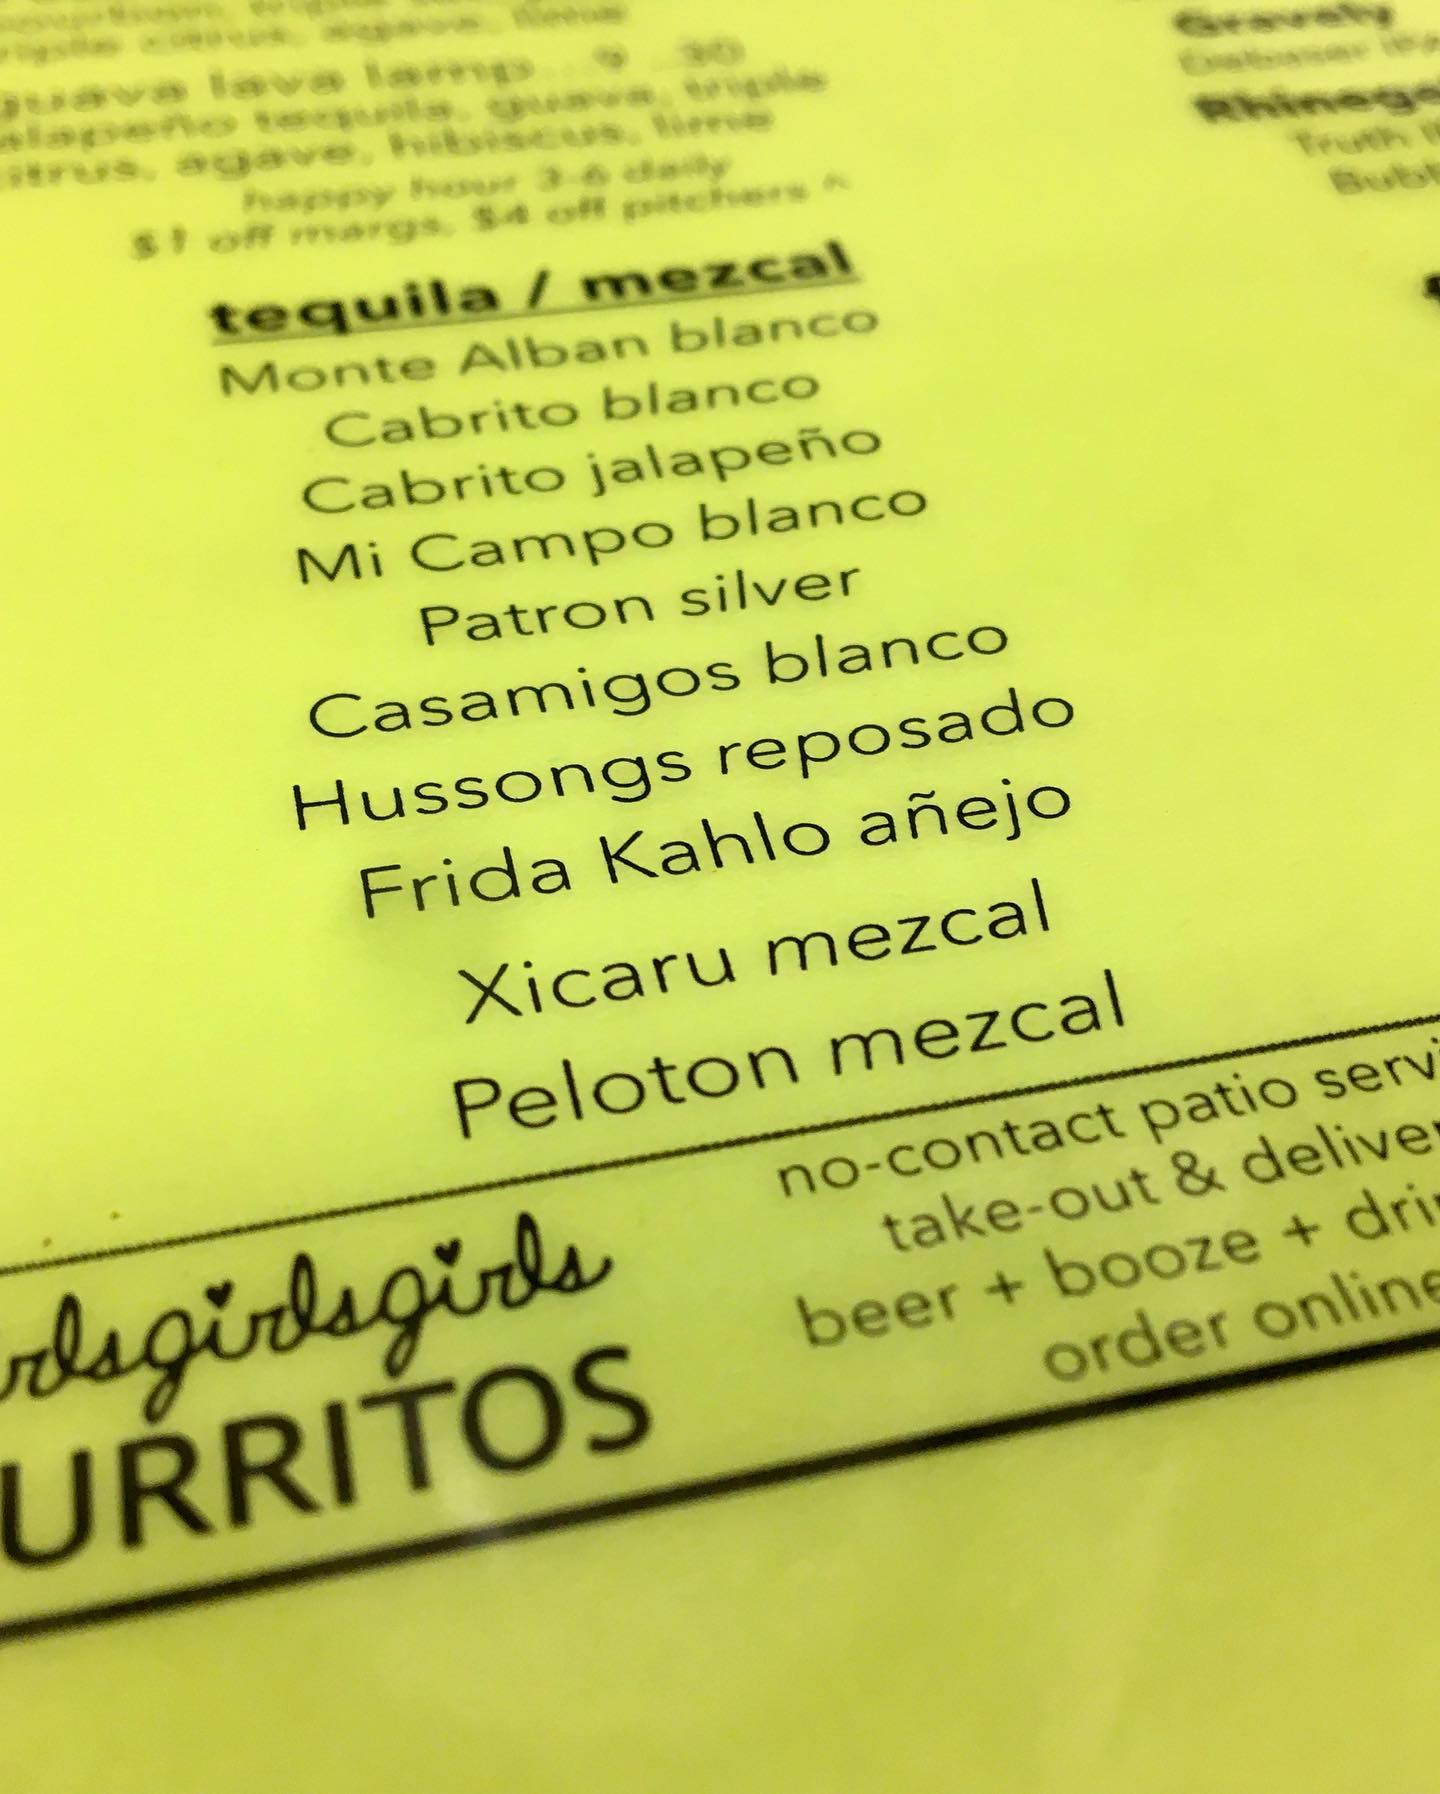 triple citrus, agave, lime
guava lava lamp 9 30
jalapeño tequila, guava, triple
citrus, agave, hibiscus, lime
happy hour 3-6 daily
$1 off margs, $4 off pitchers ^
tequila / mezcal
Monte Alban blanco
Cabrito blanco
Cabrito jalapeño
Mi Campo blanco
Patron silver
Casamigos blanco
Hussongs reposado
Frida Kahlo añejo
Xicaru mezcal
Peloton mezcal
Gravely
Debaser IPA
Rhinege
Truth I
Bubb
no-contact patio servi
take-out & deliver
beer + booze + dri
order online
rlsgirlsgirls
URRITOS